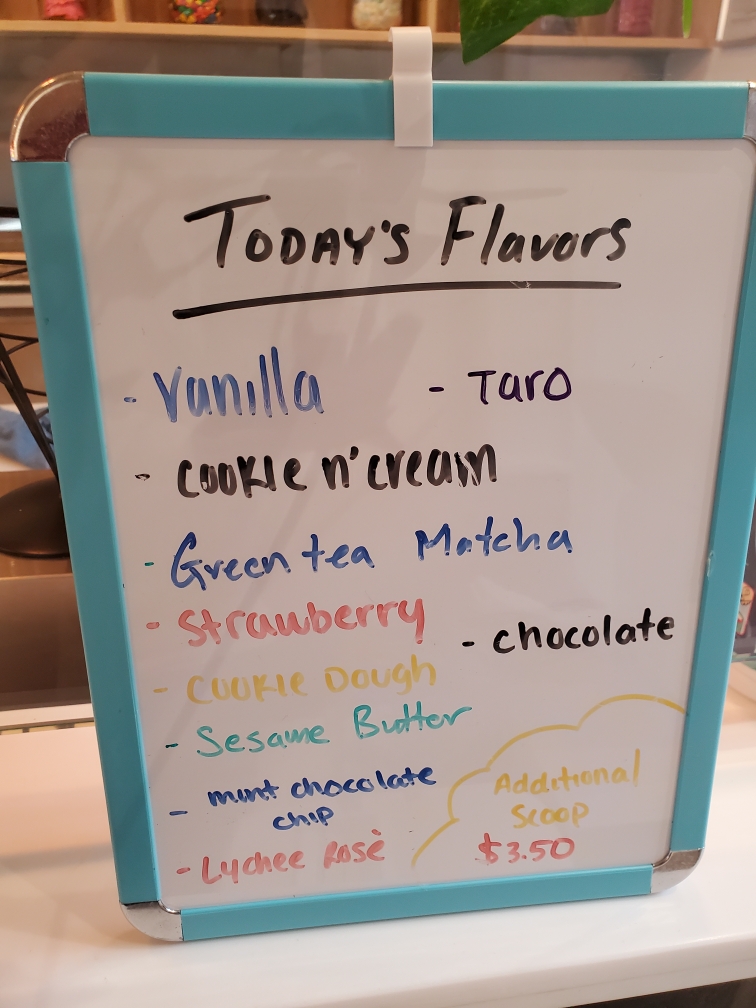 TODAY'S Flavors
- Vanilla
- Taro
- COOKIE n' cream
- Green tea Matcha
- Strawberry
- chocolate
- COOKIE DOUGH
- Sesame Butter
- mint chocolate
chip
- Lychee Rosè
Additional
Scoop
$3.50